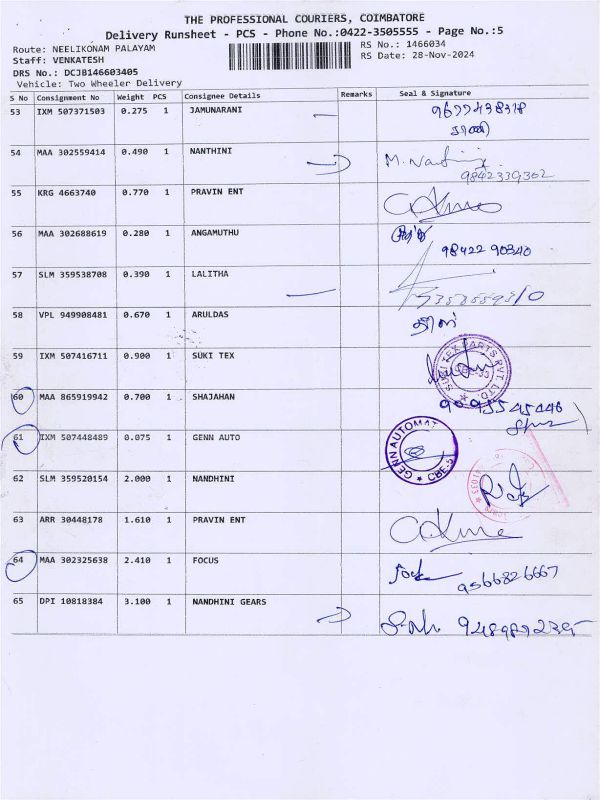 THE PROFESSIONAL COURIERS, COIMBATORE
Delivery Runsheet - PCS - Phone No.:0422-3505555 - Page No.:5
Route: NEELIKONAM PALAYAM
RS No.: 1466034
Staff: VENKATESH
RS Date: 28-Nov-2024
DRS No.: DCJB146603405
Vehicle: Two Wheeler Delivery
S No Consignment No Weight PCS Consignee Details Remarks Seal & Signature
53 IXM 507371503 0.275 1 JAMUNARANI
54 MAA 302559414 0.490 1 NANTHINI
9842339362
55 KRG 4663740 0.770 1 PRAVIN ENT
56 MAA 302688619 0.280 1 ANGAMUTHU
98422 90340
57 SLM 359538708 0.390 1 LALITHA
58 VPL 949908481 0.670 1 ARULDAS
59 IXM 507416711 0.900 1 SUKI TEX
SUKI TEX PARTS PVT. LTD.
60 MAA 865919942 0.700 1 SHAJAHAN
61 IXM 507448489 0.075 1 GENN AUTO
GENN AUTOMAT
CBE-5
62 SLM 359520154 2.000 1 NANDHINI
63 ARR 30448178 1.610 1 PRAVIN ENT
64 MAA 302325638 2.410 1 FOCUS
9566826667
65 DPI 10818384 3.100 1 NANDHINI GEARS